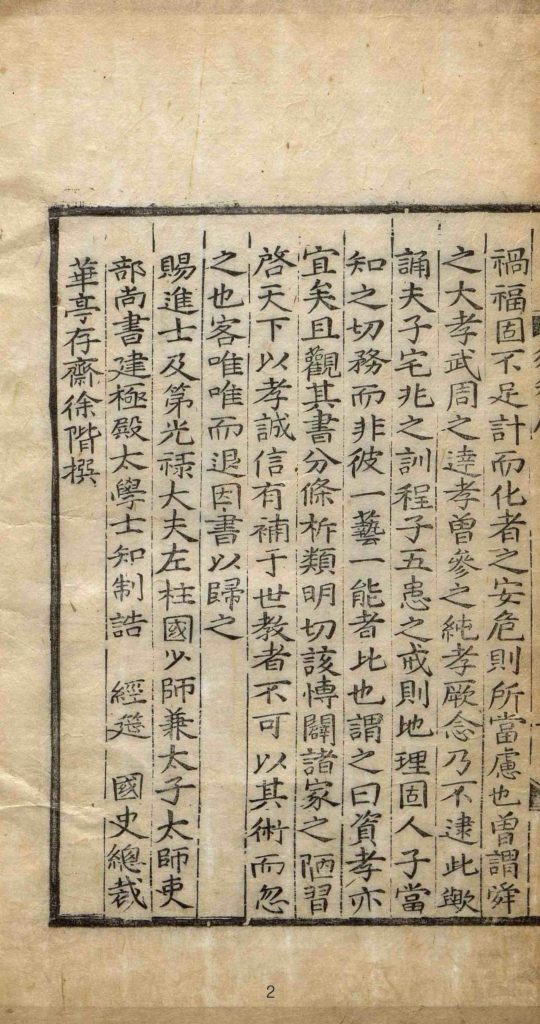 禍福固不足計而化者之安危則所當慮也曾謂舜
之大孝武周之達孝曾參之純孝厥念乃不逮此歟
誦夫子宅兆之訓程子五患之戒則地理固人子當
知之切務而非彼一藝一能者比也謂之曰資孝亦
宜矣且觀其書分條析類明切該慱闢諸家之陋習
啓天下以孝誠信有補于世教者不可以其術而忽
之也客唯唯而退因書以歸之
賜進士及第光祿大夫左柱國少師兼太子太師吏
部尚書建極殿太學士知制誥 經筵 國史總裁
華亭存齋徐階撰
2